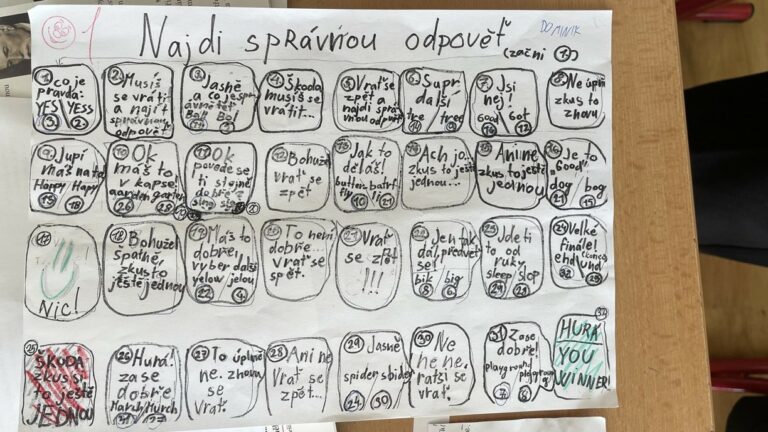 Najdi správnou odpověť
(začni 1.)
DOMINIK
1 co je
pravda:
YES/YESS
3 2
2. Musíš
se vrátit
a najít
správnou
odpověť
3. Jasně
a co je správně
Boll Bo!
4. Škoda
musíš se
vrátit...
5 Vrať se
zpět a
najdi sprá
vnou odpověť
6. Supr
další
tre/tree
7. Jsi
nej!
Good Got
16 12
8. Ne úplně
zkus to
znovu.
9. Jupí
máš na tal
Happy/Happ
15 18
10 Ok
máš to
v kapse!
garden
26 28
11 Ok
povede se
ti stejně
dobře?
12 Bohužel
vrať se
zpět
13 Jak to
děláš!
butter
fly
10 21
14 Ach jo...
zkus to ještě
jednou...
15 Ani ne
zkus to ještě
jednou
16 Je to
„Good"
dog bog
17
Nic!
18 Bohužel
špatně,
zkus to
ještě jednou
19 Máš to
dobře,
vyber další
yelow/jelou
22 4
20 To není
dobře...
vrať se
spět.
21 Vrať
se zpět
!!!
22 Jen tak
dál, předveť
se!
bik/big
5 6
23 Jde ti
to od
ruky,
sleep/slop
24 Velké
finále!
end
25
ŠKODA
zkus si
to ještě
JEDNOU
26 Hurá!
zase
dobře
March/Murch
27 To úplně
ne. znovu
se
vrať.
28 Ani ne
Vrať se
zpět...
29
Jasně
spider sbider
24. 30
30
Ne
ne ne,
ratši se
vrať.
31 Zase
dobře!
playground
32
HURÁ
YOU
WINNER!